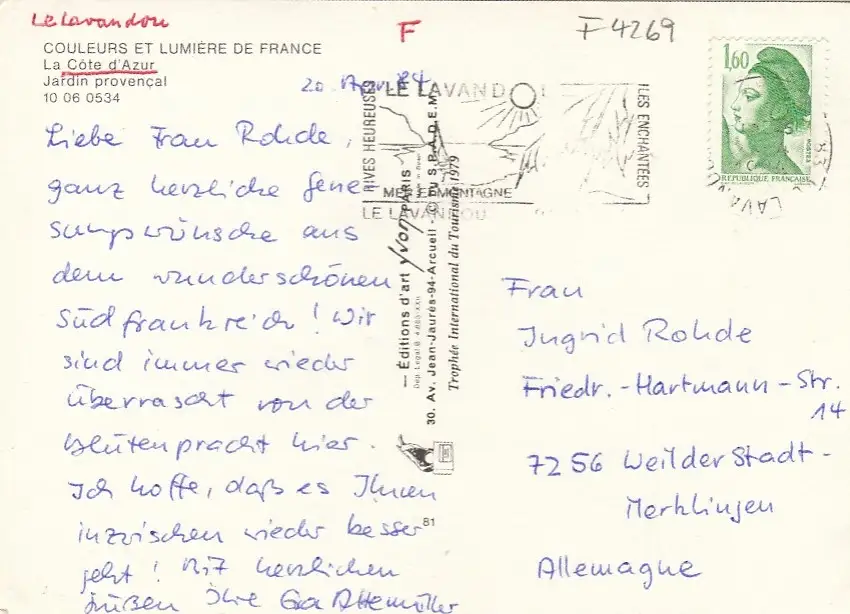 Le Lavandou
F
F 4269
COULEURS ET LUMIÈRE DE FRANCE
La Côte d'Azur
Jardin provençal
10 06 0534
20. Apr. 84
Liebe Frau Rohde,
ganz herzliche Gene
sungswünsche aus
dem wunderschönen
Südfrankreich! Wir
sind immer wieder
überrascht von der
Blütenpracht hier.
Ich hoffe, daß es Ihnen
inzwischen wieder besser
geht! Mit herzlichen
Grüßen Ihre
RIVES HEUREUSES
LE LAVANDOU
MER ET MONTAGNE
LE LAVANDOU
ILES ENCHANTÉES
1,60
POSTES
REPUBLIQUE FRANÇAISE
83
LAVAN
— Éditions d'art yvon PARIS
30. Av. Jean-Jaurès-94-Arcueil - © DU S.P.A.D.E.M.
Trophée International du Tourisme 1979
81
Frau
Ingrid Rohde
Friedr.-Hartmann-Str.
14
7256 Weil der Stadt-
Merklingen
Allemagne